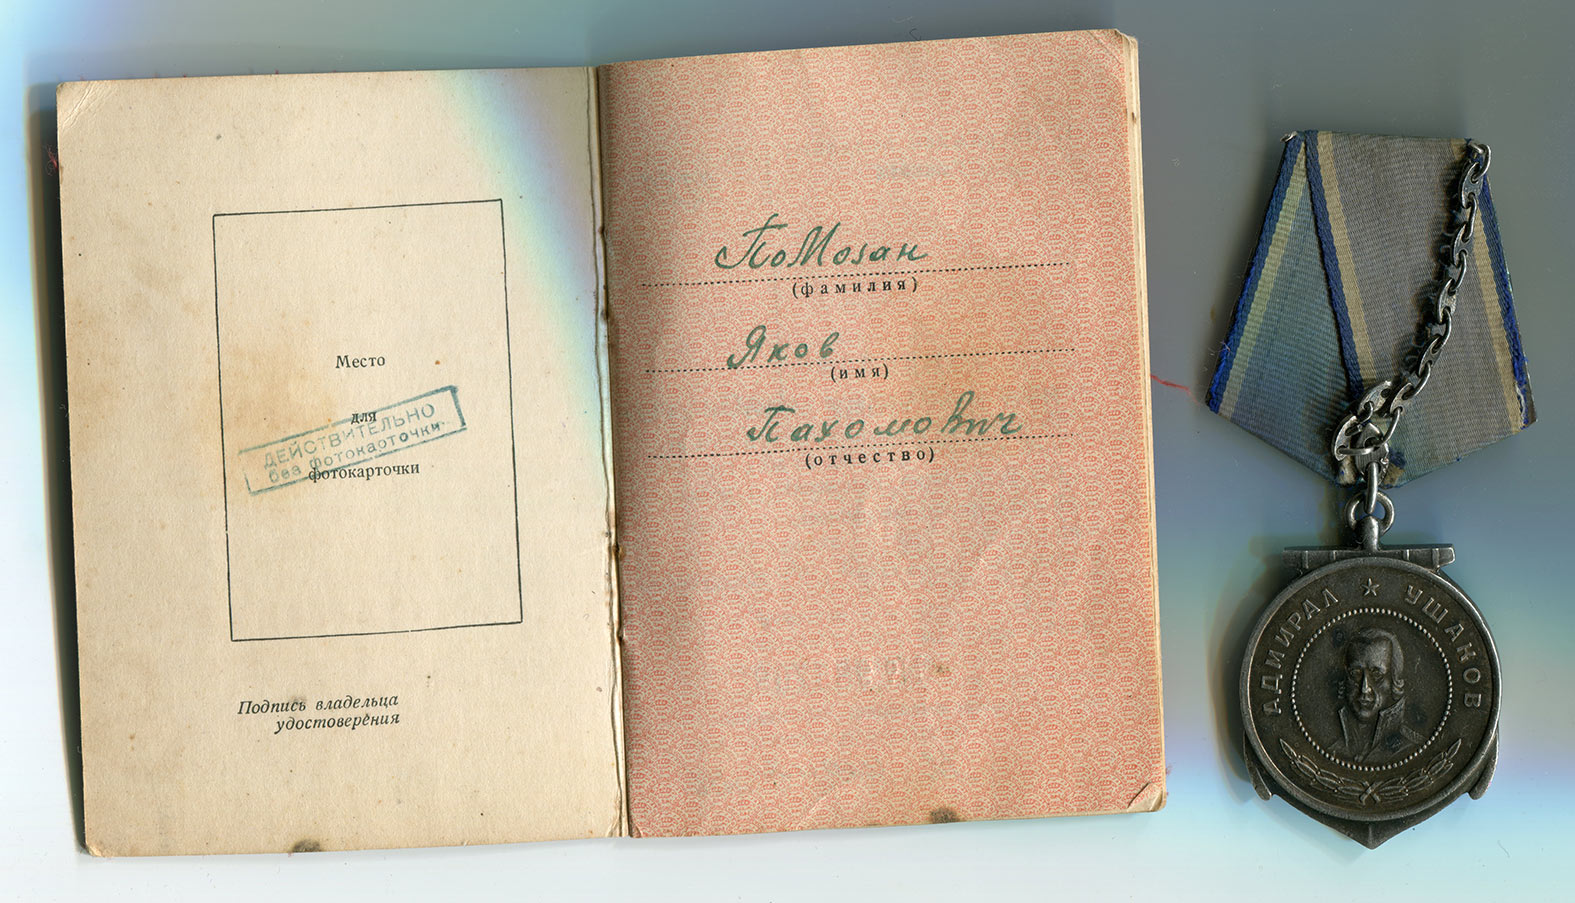 Место
для
фотокарточки
ДЕЙСТВИТЕЛЬНО
без фотокарточки
Подпись владельца
удостоверения
Помозан
(фамилия)
Яков
(имя)
Пахомович
(отчество)
АДМИРАЛ ★ УШАКОВ